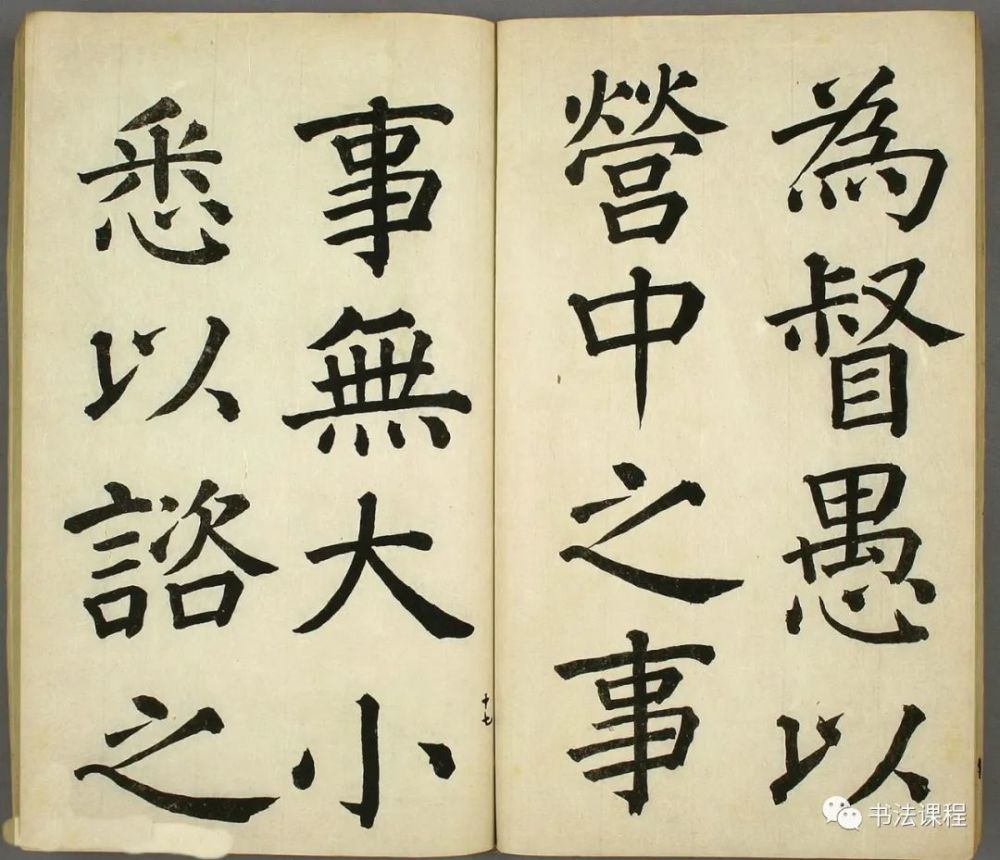 為督愚以
營中之事
事無大小
悉以諮之
十七
书法课程